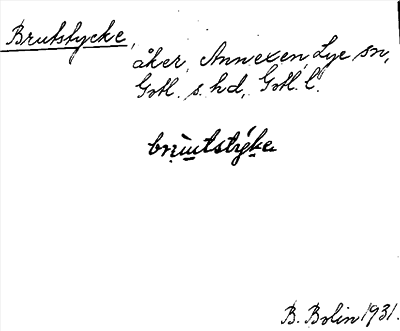 Brutstycke,
åker, Annexen, Lye sn,
Gotl. s. hd, Gotl. l.
B. Bolin 1931.